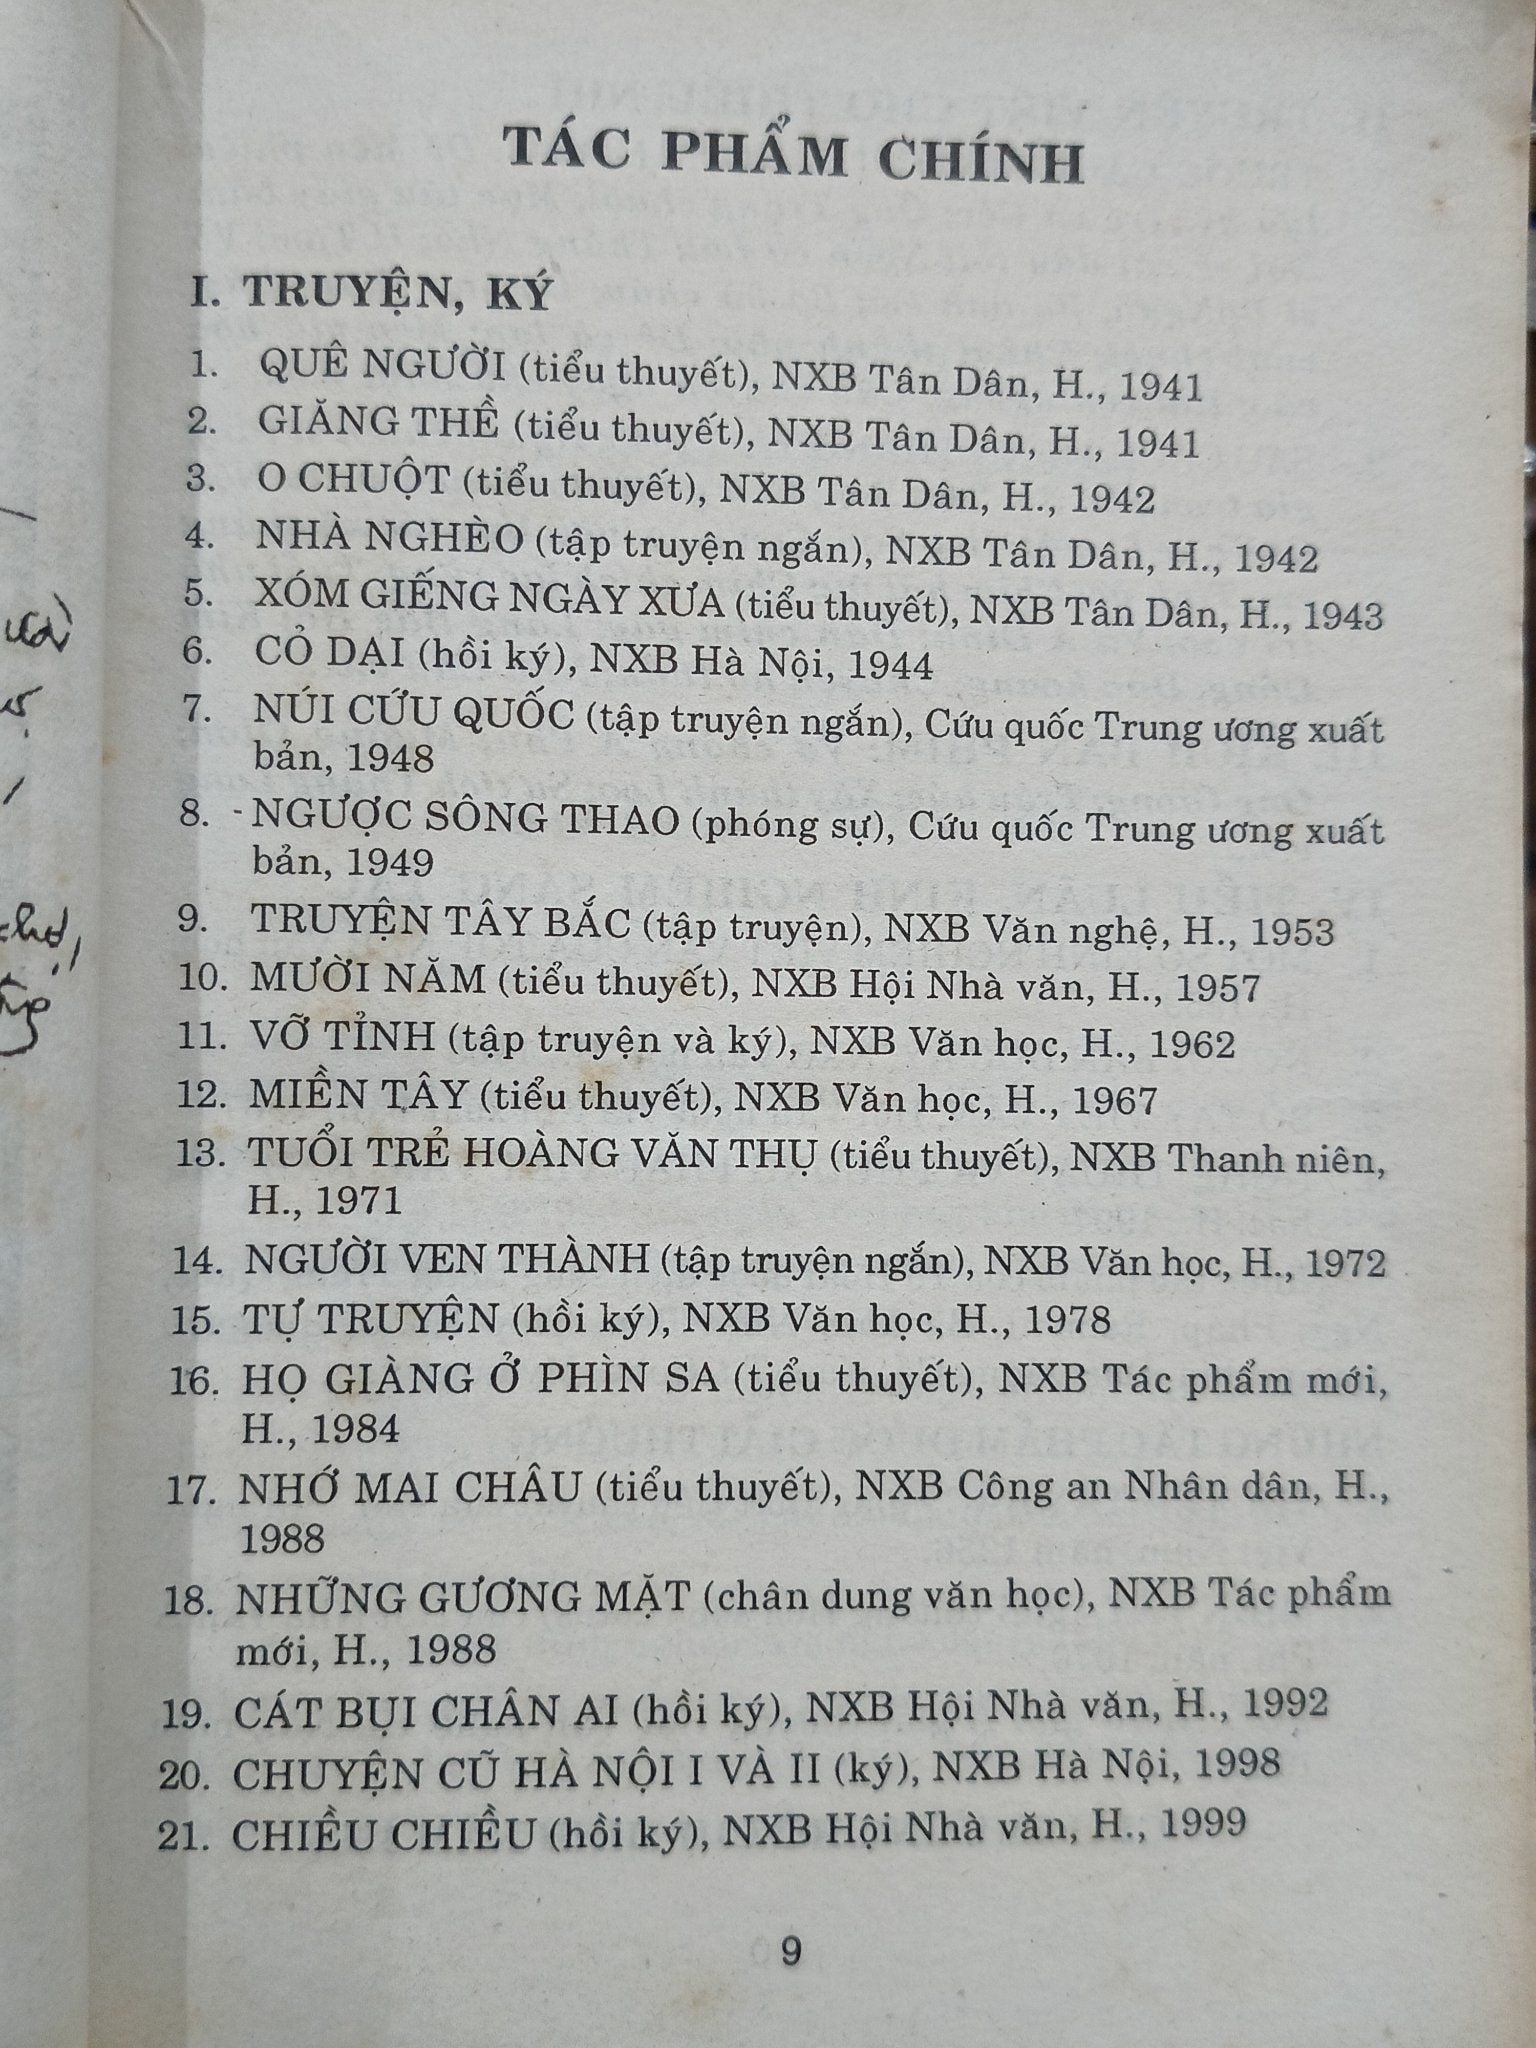 TÁC PHẨM CHÍNH
I. TRUYỆN, KÝ
1. QUÊ NGƯỜI (tiểu thuyết), NXB Tân Dân, H., 1941
2. GIĂNG THỀ (tiểu thuyết), NXB Tân Dân, H., 1941
3. O CHUỘT (tiểu thuyết), NXB Tân Dân, H., 1942
4. NHÀ NGHÈO (tập truyện ngắn), NXB Tân Dân, H., 1942
5. XÓM GIẾNG NGÀY XƯA (tiểu thuyết), NXB Tân Dân, H., 1943
6. CỎ DẠI (hồi ký), NXB Hà Nội, 1944
7. NÚI CỨU QUỐC (tập truyện ngắn), Cứu quốc Trung ương xuất
bản, 1948
8. - NGƯỢC SÔNG THAO (phóng sự), Cứu quốc Trung ương xuất
bản, 1949
9. TRUYỆN TÂY BẮC (tập truyện), NXB Văn nghệ, H., 1953
10. MƯỜI NĂM (tiểu thuyết), NXB Hội Nhà văn, H., 1957
11. VỠ TỈNH (tập truyện và ký), NXB Văn học, H., 1962
12. MIỀN TÂY (tiểu thuyết), NXB Văn học, H., 1967
13. TUỔI TRẺ HOÀNG VĂN THỤ (tiểu thuyết), NXB Thanh niên,
H., 1971
14. NGƯỜI VEN THÀNH (tập truyện ngắn), NXB Văn học, H., 1972
15. TỰ TRUYỆN (hồi ký), NXB Văn học, H., 1978
16. HỌ GIÀNG Ở PHÌN SA (tiểu thuyết), NXB Tác phẩm mới,
H., 1984
17. NHỚ MAI CHÂU (tiểu thuyết), NXB Công an Nhân dân, H.,
1988
18. NHỮNG GƯƠNG MẶT (chân dung văn học), NXB Tác phẩm
mới, H., 1988
19. CÁT BỤI CHÂN AI (hồi ký), NXB Hội Nhà văn, H., 1992
20. CHUYỆN CŨ HÀ NỘI I VÀ II (ký), NXB Hà Nội, 1998
21. CHIỀU CHIỀU (hồi ký), NXB Hội Nhà văn, H., 1999
9